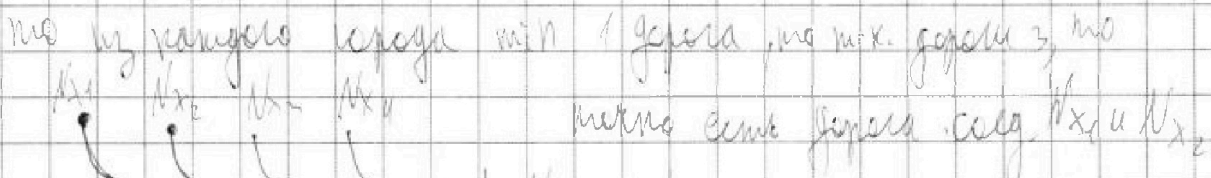 то из каждого города min 1 дорога, но т.к. дорог 3, то
Nx₁ Nx₂ Nx₃ Nx₄ точно есть дорога соед Nx₁ и Nx₂